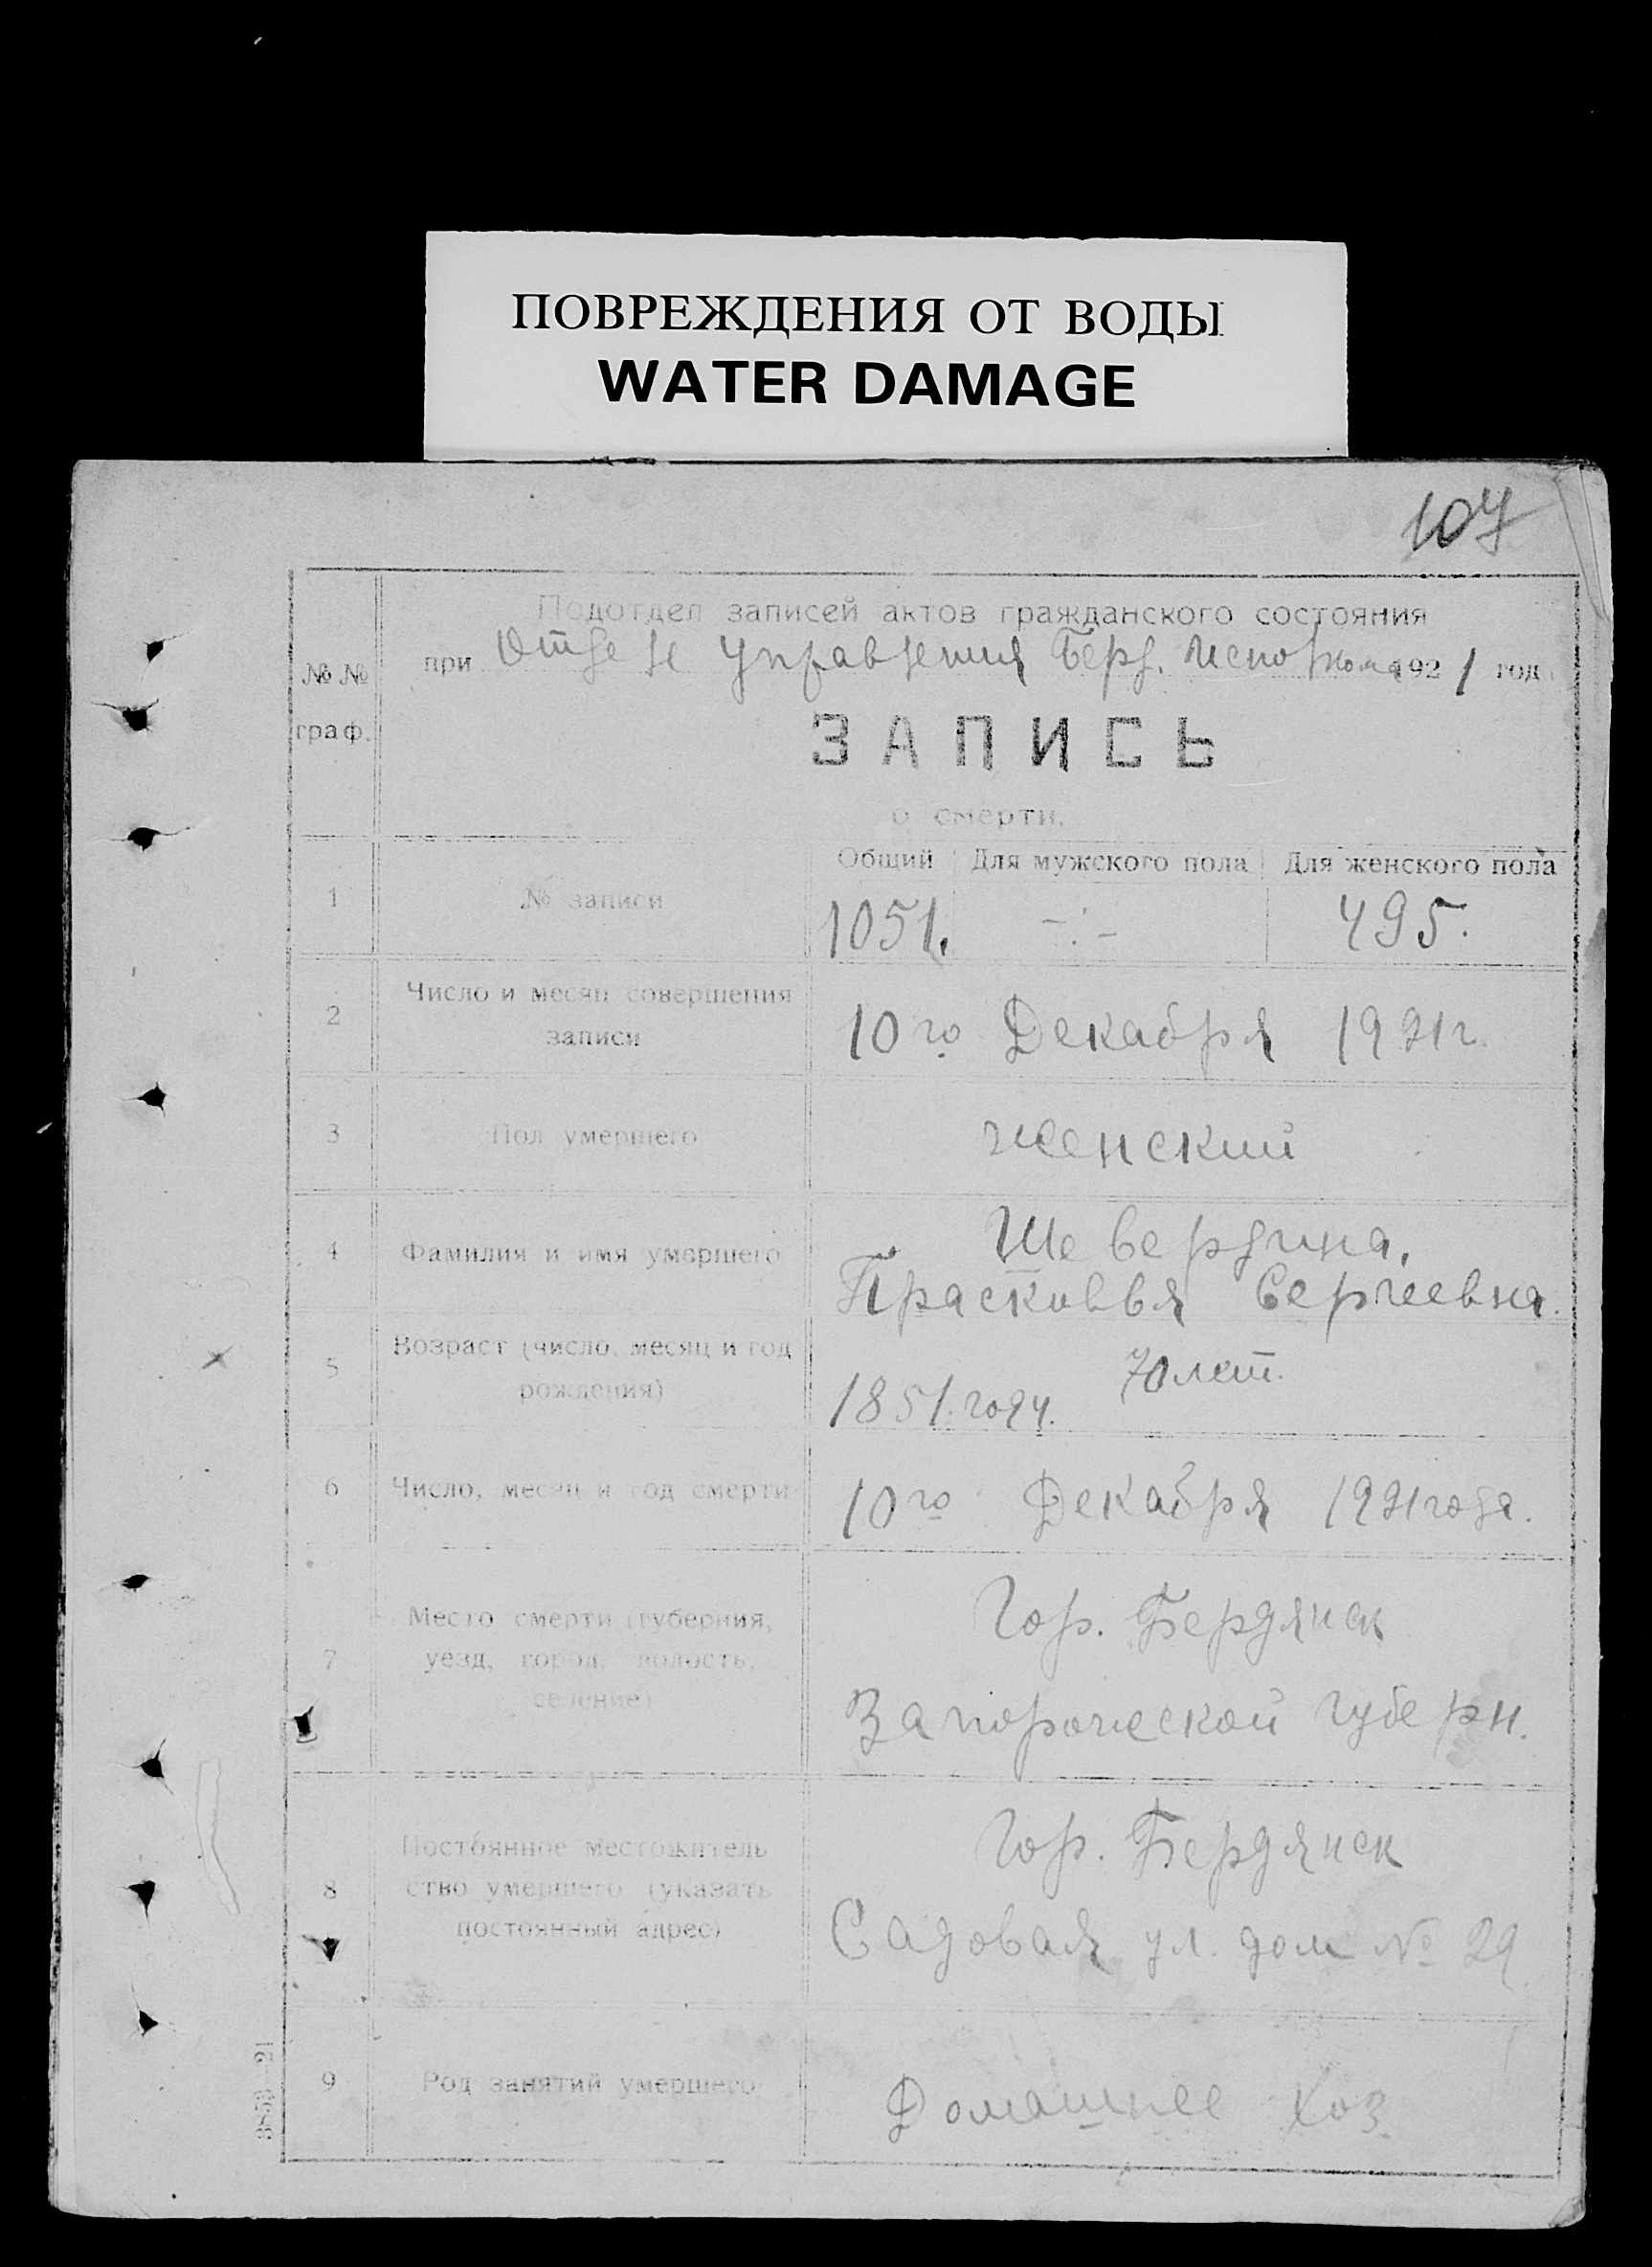 ПОВРЕЖДЕНИЯ ОТ ВОДЫ
WATER DAMAGE
107
Подотдел записей актов гражданского состояния
№ № при Отделе Управления Берд. Исполкома 1921 год
граф.
ЗАПИСЬ
о смерти.
Общий Для мужского пола Для женского пола
1 № записи 1051. -:- 495.
2 Число и месяц совершения
записи 10го Декабря 1921г.
3 Пол умершего женский
4 Фамилия и имя умершего Шевердина,
Прасковья Сергеевна.
5 Возраст (число, месяц и год
рождения) 1851 году. 70 лет.
6 Число, месяц и год смерти 10го Декабря 1921 года.
7 Место смерти (губерния, Гор. Бердянск
уезд, город, волость,
селение) Запорожской губерн.
8 Постоянное местожитель Гор. Бердянск
ство умершего (указать
постоянный адрес) Садовая ул. дом № 29
9 Род занятий умершего Домашнее Хоз
3853—21